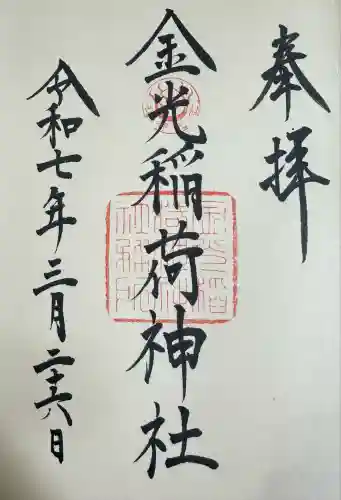 奉拝
金光稲荷神社
令和七年三月二十六日